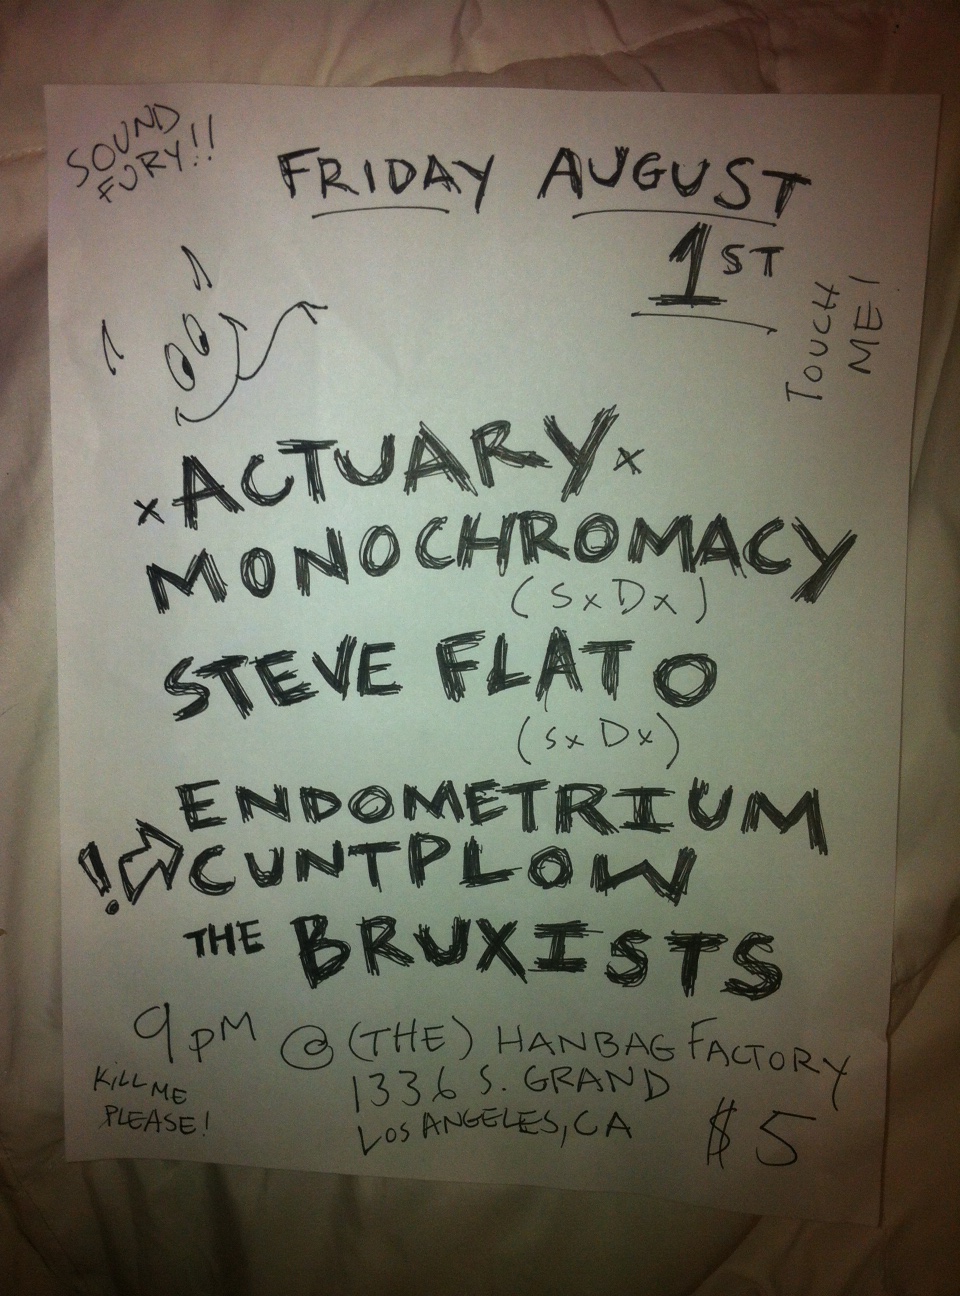 SOUND
FURY!!
FRIDAY AUGUST
1ST
TOUCH
ME!
xACTUARYx
MONOCHROMACY
(SxDx)
STEVE FLATO
(SxDx)
ENDOMETRIUM
! CUNTPLOW
THE BRUXISTS
9PM @ (THE) HANBAG FACTORY
1336 S. GRAND
LOS ANGELES, CA
$5
KILL ME
PLEASE!